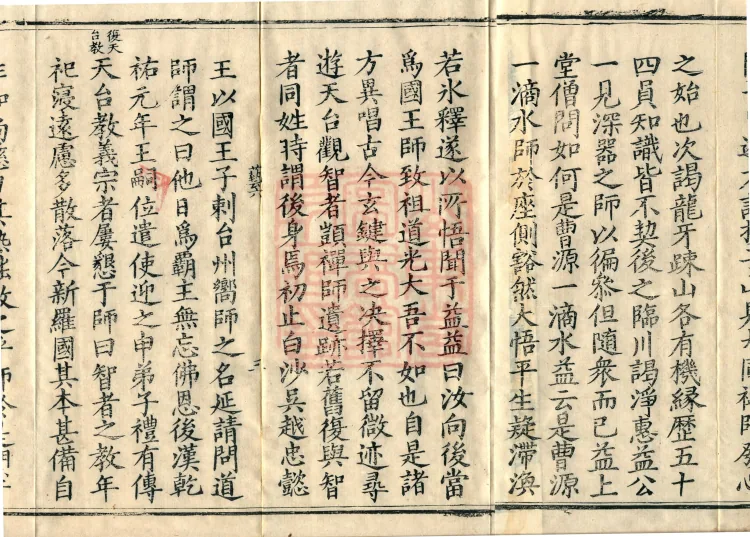 之始也次謁龍牙踈山各有機緣歷五十
四員知識皆不契後之臨川謁淨惠益公
一見深器之師以徧叅但隨衆而已益上
堂僧問如何是曹源一滴水益云是曹源
一滴水師於座側豁然大悟平生疑滯渙
若氷釋遂以所悟聞于益益曰汝向後當
爲國王師致祖道光大吾不如也自是諸
方異唱古今玄鍵與之决擇不留微迹尋
遊天台觀智者顗禪師遺跡若舊復與智
者同姓時謂後身焉初止白沙吳越忠懿
王以國王子刺台州嚮師之名延請問道
師謂之曰他日爲霸主無忘佛恩後漢乾
祐元年王嗣位遣使迎之申弟子禮有傳
復天
台教
天台教義宗者屢懇于師曰智者之教年
祀寖遠慮多散落今新羅國其本甚備自